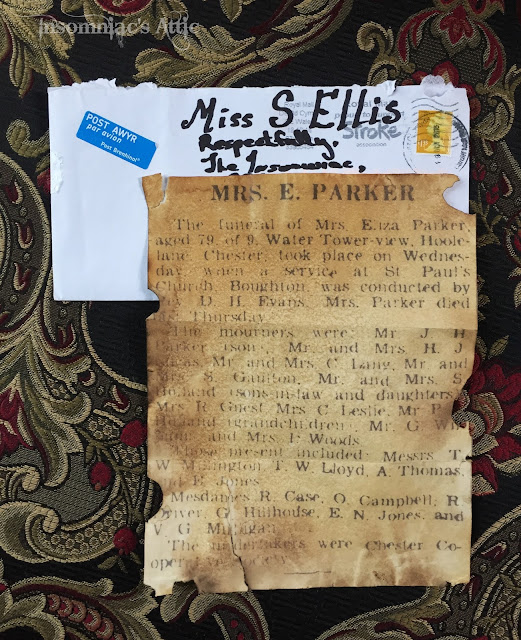 Insomniac's Attic
Miss S Ellis
Respectfully,
The Insomniac,
POST AWYR
par avion
Post Brenhinol
Royal Mail
Stroke
association
MRS. E. PARKER
The funeral of Mrs. Eliza Parker,
aged 79, of 9, Water Tower-view, Hoole-
lane, Chester, took place on Wednes-
day, when a service at St Paul's
Church, Boughton, was conducted by
D. H. Evans. Mrs. Parker died
Thursday.
The mourners were: Mr. J. H.
Parker (son), Mr. and Mrs. H. J.
Mr. and Mrs. C. Lang, Mr. and
Mrs. S. Mr. and Mrs. S.
Holland (sons-in-law and daughters),
Mrs R. Guest, Mrs C. Leslie, Mr. P.
Holland (grandchildren), Mr. G.
and Mrs. F. Woods.
Those present included: Messrs. T.
W. Millington, T. W. Lloyd, A. Thomas,
E. Jones.
Mesdames R. Case, O. Campbell, R.
Driver, G. Hillhouse, E. N. Jones, and
V. G. Milligan.
The undertakers were Chester Co-